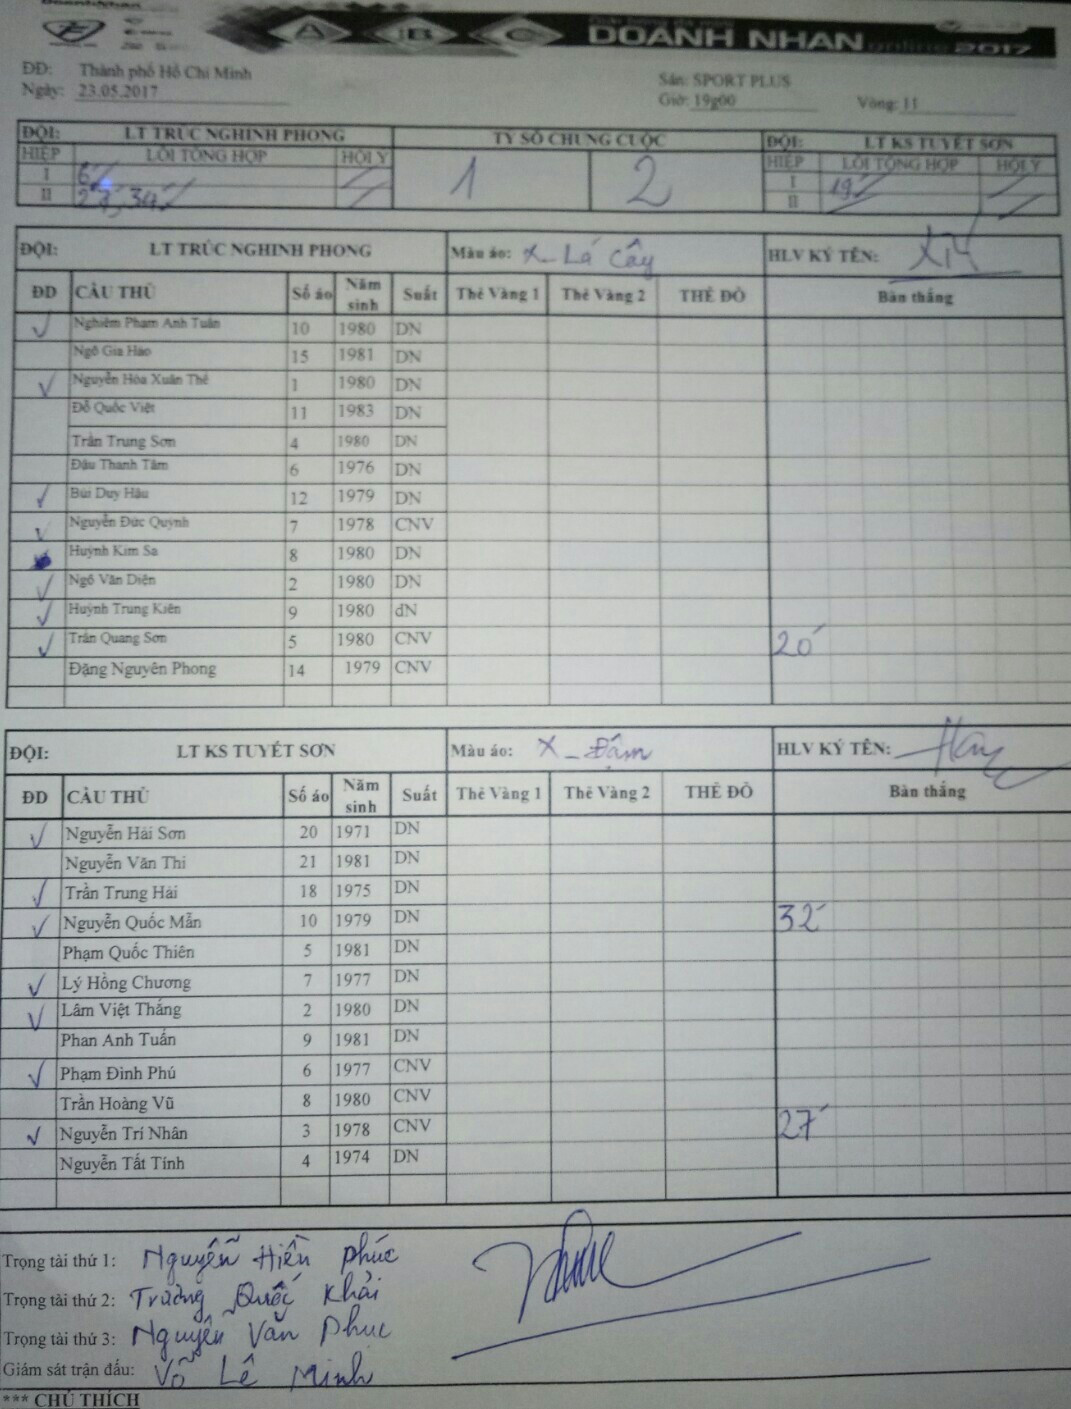 A B C DOANH NHAN online 2017
ĐĐ: Thành phố Hồ Chí Minh
Sân: SPORT PLUS
Ngày: 23.05.2017
Giờ: 19g00 Vòng: 11
ĐỘI: LT TRÚC NGHINH PHONG TỶ SỐ CHUNG CUỘC ĐỘI: LT KS TUYẾT SƠN
HIỆP LỖI TỔNG HỢP HỘI Ý 1 2 HIỆP LỖI TỔNG HỢP HỘI Ý
I 6' I 19'
II 27, 34' II
ĐỘI: LT TRÚC NGHINH PHONG Màu áo: X - Lá Cây HLV KÝ TÊN:
ĐD CẦU THỦ Số áo Năm sinh Suất Thẻ Vàng 1 Thẻ Vàng 2 THẺ ĐỎ Bàn thắng
✓ Nghiêm Phạm Anh Tuấn 10 1980 DN
Ngô Gia Hào 15 1981 DN
✓ Nguyễn Hòa Xuân Thê 1 1980 DN
Đỗ Quốc Việt 11 1983 DN
Trần Trung Sơn 4 1980 DN
Đậu Thanh Tâm 6 1976 DN
✓ Bùi Duy Hậu 12 1979 DN
✓ Nguyễn Đức Quỳnh 7 1978 CNV
Huỳnh Kim Sa 8 1980 DN
✓ Ngô Văn Diện 2 1980 DN
✓ Huỳnh Trung Kiên 9 1980 dN
✓ Trần Quang Sơn 5 1980 CNV 20'
Đặng Nguyên Phong 14 1979 CNV
ĐỘI: LT KS TUYẾT SƠN Màu áo: X - Đậm HLV KÝ TÊN:
ĐD CẦU THỦ Số áo Năm sinh Suất Thẻ Vàng 1 Thẻ Vàng 2 THẺ ĐỎ Bàn thắng
✓ Nguyễn Hải Sơn 20 1971 DN
Nguyễn Văn Thi 21 1981 DN
✓ Trần Trung Hải 18 1975 DN
✓ Nguyễn Quốc Mẫn 10 1979 DN 32'
Phạm Quốc Thiên 5 1981 DN
✓ Lý Hồng Chương 7 1977 DN
✓ Lâm Việt Thắng 2 1980 DN
Phan Anh Tuấn 9 1981 DN
✓ Phạm Đình Phú 6 1977 CNV
Trần Hoàng Vũ 8 1980 CNV
✓ Nguyễn Trí Nhân 3 1978 CNV 27'
Nguyễn Tất Tính 4 1974 DN
Trọng tài thứ 1: Nguyễn Hiền Phúc
Trọng tài thứ 2: Trương Quốc Khải
Trọng tài thứ 3: Nguyễn Văn Phuc
Giám sát trận đấu: Võ Lê Minh
*** CHÚ THÍCH